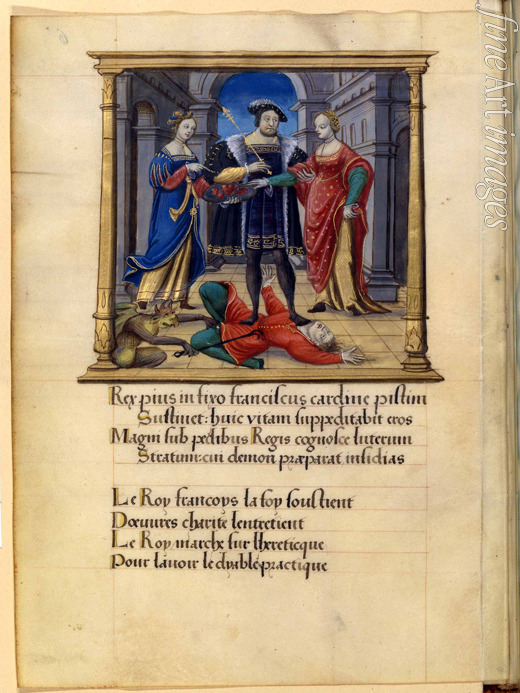 Rex pius in fixo franciscus cardine pistim
Sustinet: huic vitam suppeditabit eros
Magni sub pedibus Regis cognosce luterum
Stratum: cui demon præparat insidias
Le Roy francoys la foy soustient
Dœuures charite lentretient
Le Roy marche sur lhereticque
Pour lauoir le dyable practique
fineArtimages